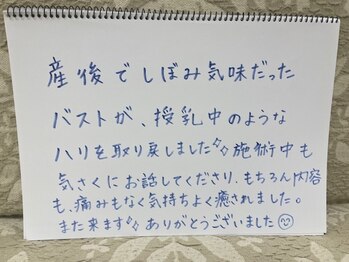 産後でしぼみ気味だった
バストが、授乳中のような
ハリを取り戻しました✨施術中も
気さくにお話してくださり、もちろん内容
も、痛みもなく気持ちよく癒されました。
また来ます✨ありがとうございました☺